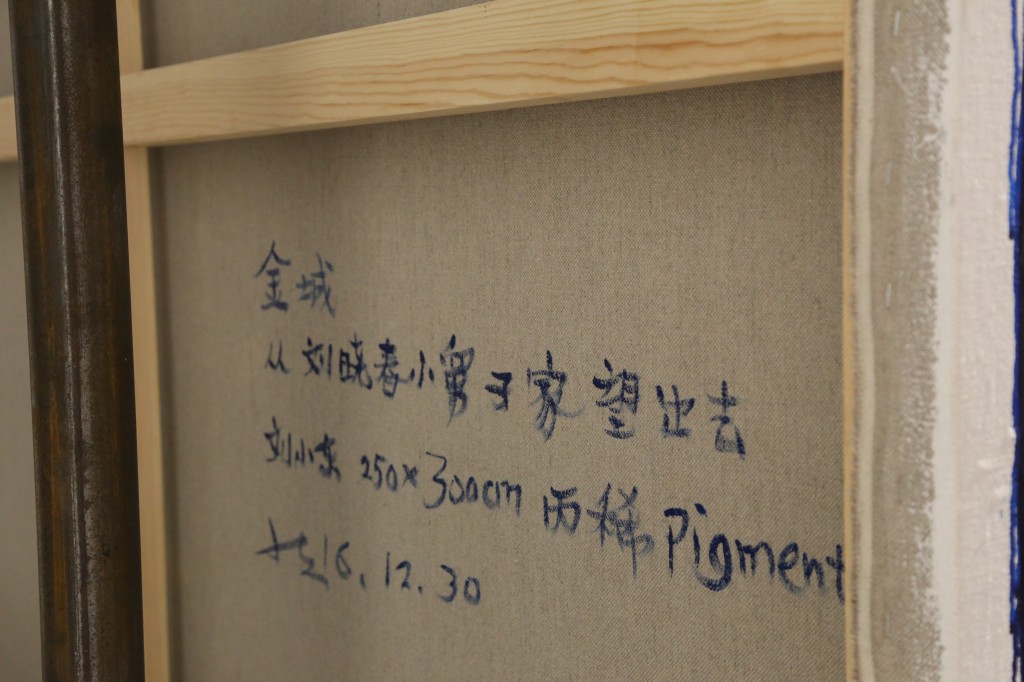 金城
从刘晓春小舅子家望出去
刘小东 250×300cm 丙稀 Pigment
16.12.30